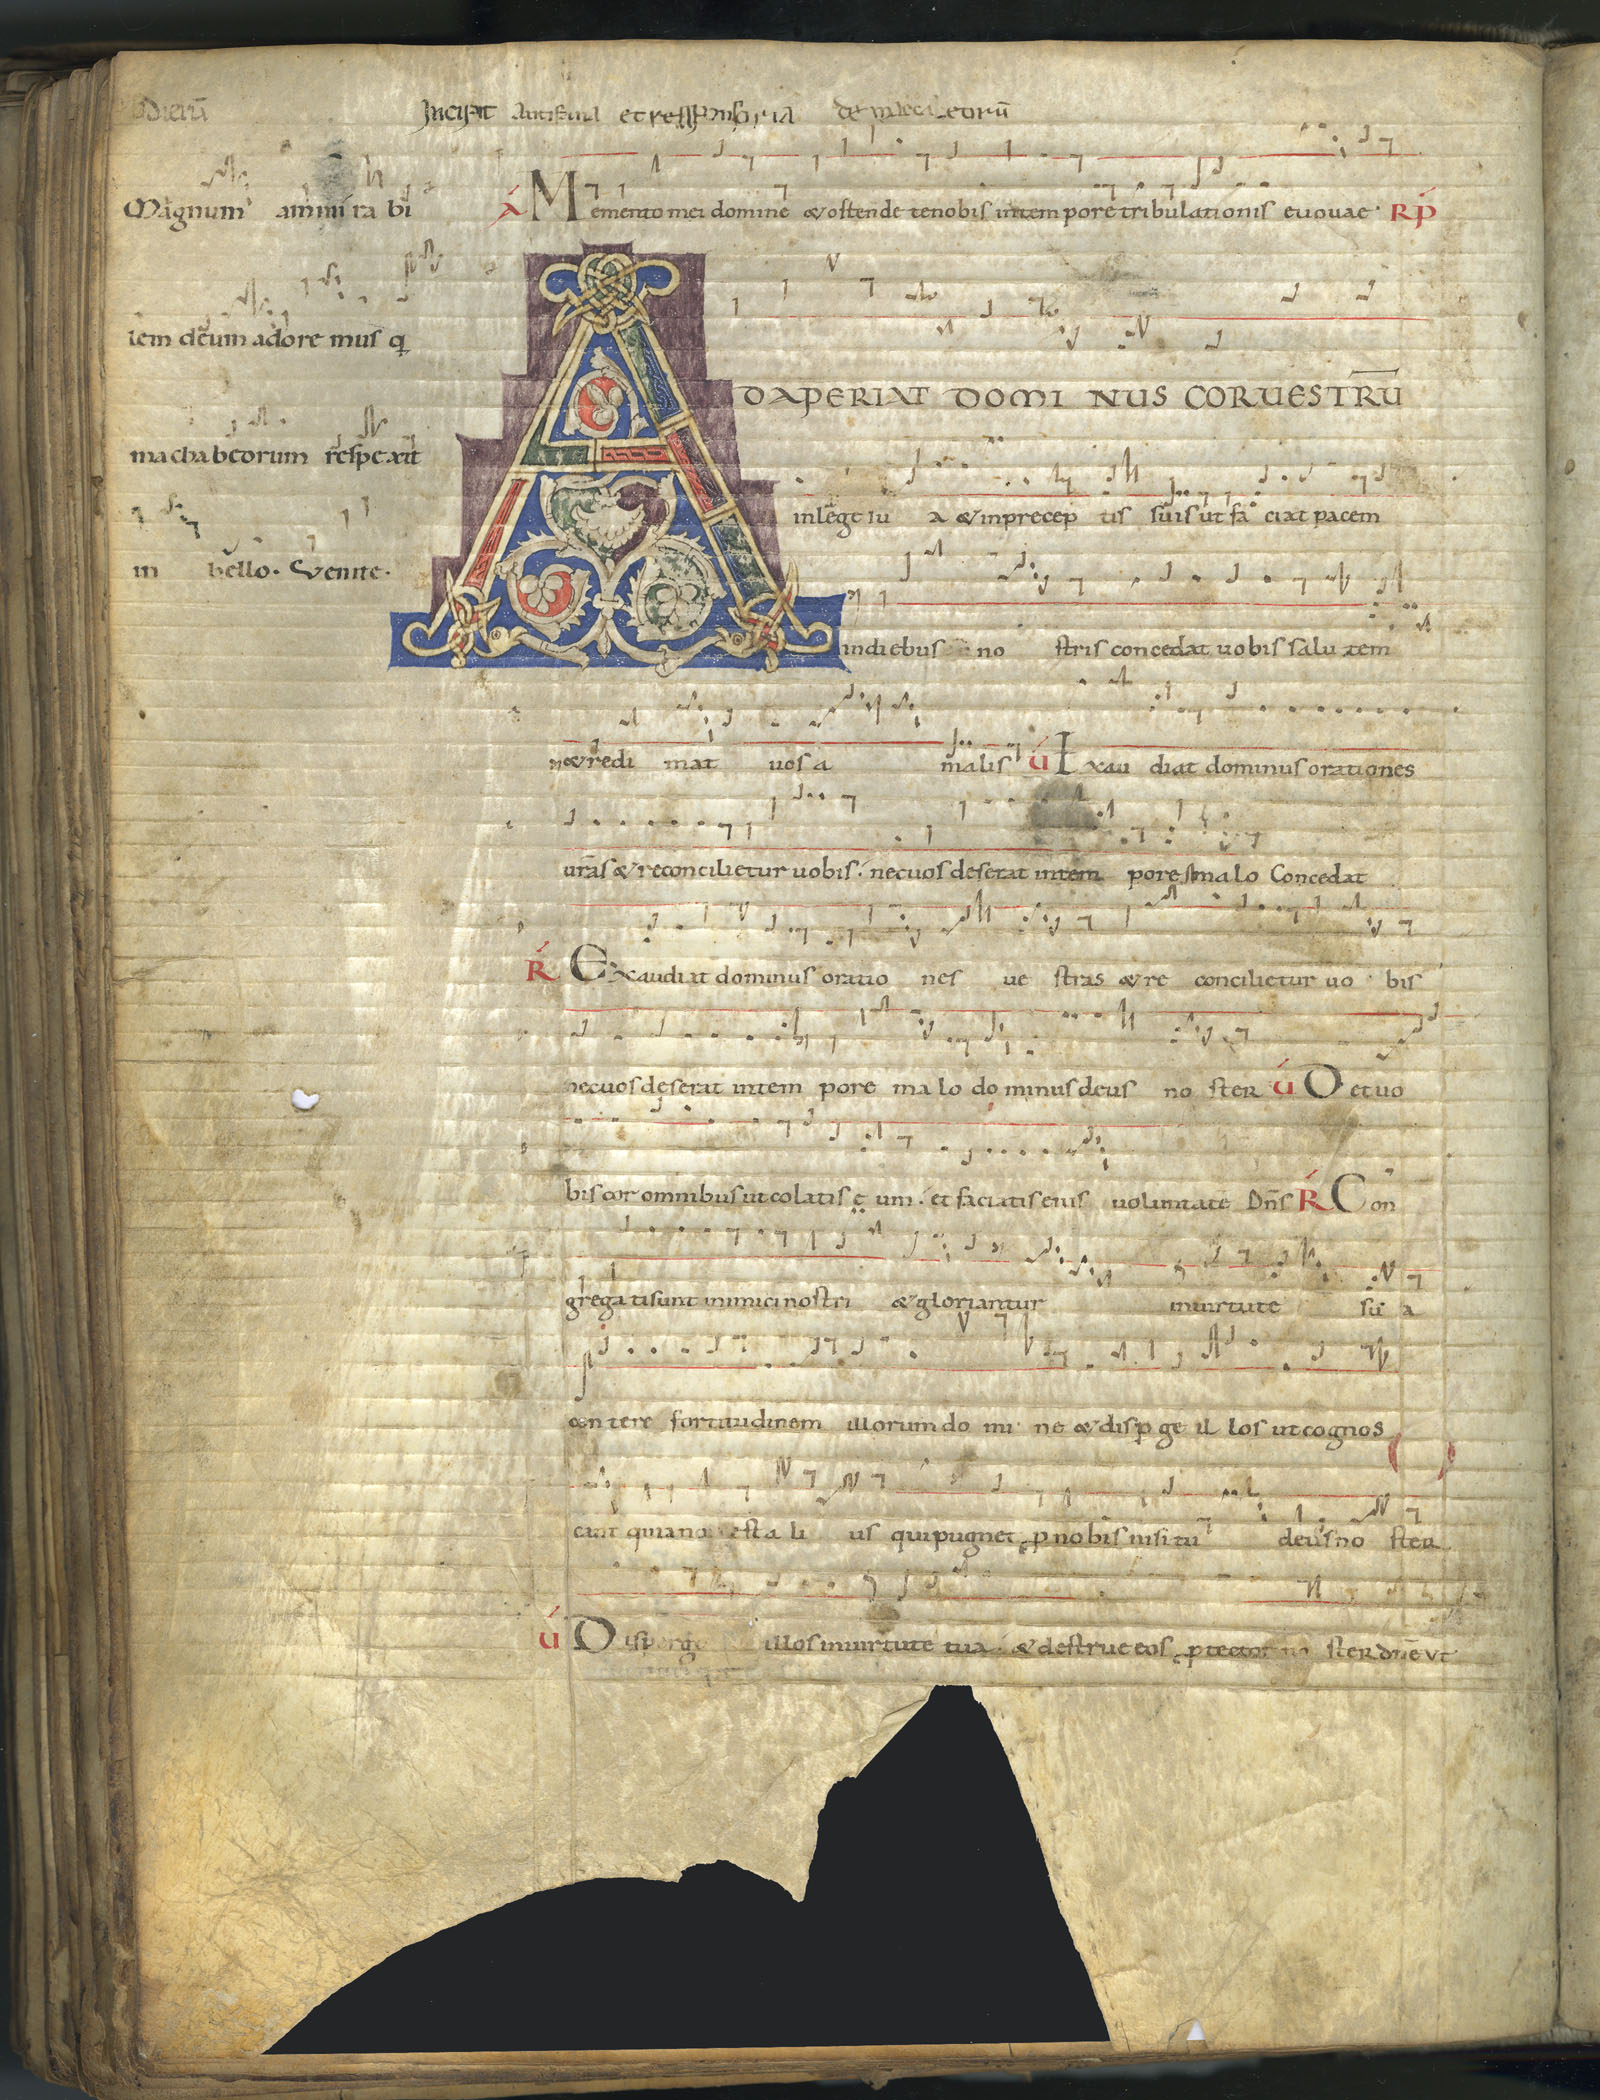 Incipit antifana et responsoria de machabeorū
A Memento mei domine & ostende te nobis in tempore tribulationis euouae· RP
Magnum ammirabi
lem deum adoremus q
machabeorum respexit
in bello· Venite·
ADAPERIAT DOMINUS COR UESTRŪ
in lege sua & in preceptis suis ut faciat pacem
in diebus nostris concedat uobis salutem
& redimat uos a malis V Exaudiat dominus orationes
uras & reconcilietur uobis· nec uos deserat in tempore malo Concedat
R Exaudiat dominus orationes uestras & reconcilietur uobis
nec uos deserat in tempore malo dominus deus noster V Det uo
bis cor omnibus ut colatis eum· et faciatis eius uoluntate Dns R Con
gregati sunt inimici nostri & gloriantur in uirtute sua
contere fortitudinem illorum domine & disp ge illos ut cognos
cant quia non est alius qui pugnet p nobis nisi tu deus noster
V Disperge illos in uirtute tua· & destrue eos ptector noster dne Vt